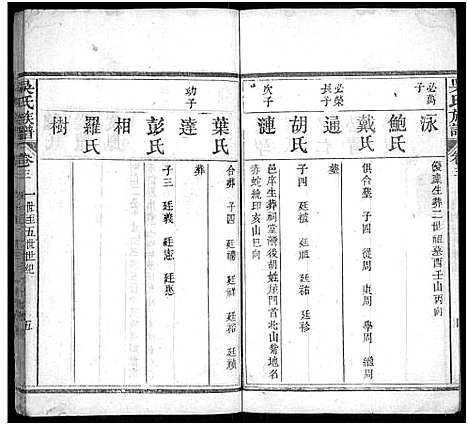 吳氏族譜
卷三
必萬子
泳
優庠生葬二世祖墓酉壬山丙向
鮑氏
戴氏
俱合墓 子四 從周 東周 學周 繼周
必榮長子
通
墓
胡氏
子四 廷 廷 廷祐 廷珍
次子
漣
邑庠生葬祠堂灣後胡姓屋門首北山嘴地名
葬蛇統印亥山巳向
葉氏
合葬 子四 廷禧 廷祥 廷裕 廷禎
幼子
達
葬
彭氏
子三 廷義 廷憲 廷惠
相
羅氏
樹
吳氏族譜
卷三
一世至五世世紀
五